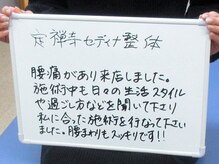 定禅寺セディナ整体
腰痛があり来店しました。
施術中も日々の生活スタイル
や過ごし方などを聞いて下さり
私に合った施術を行なって下さい
ました。腰まわりもスッキリです!!